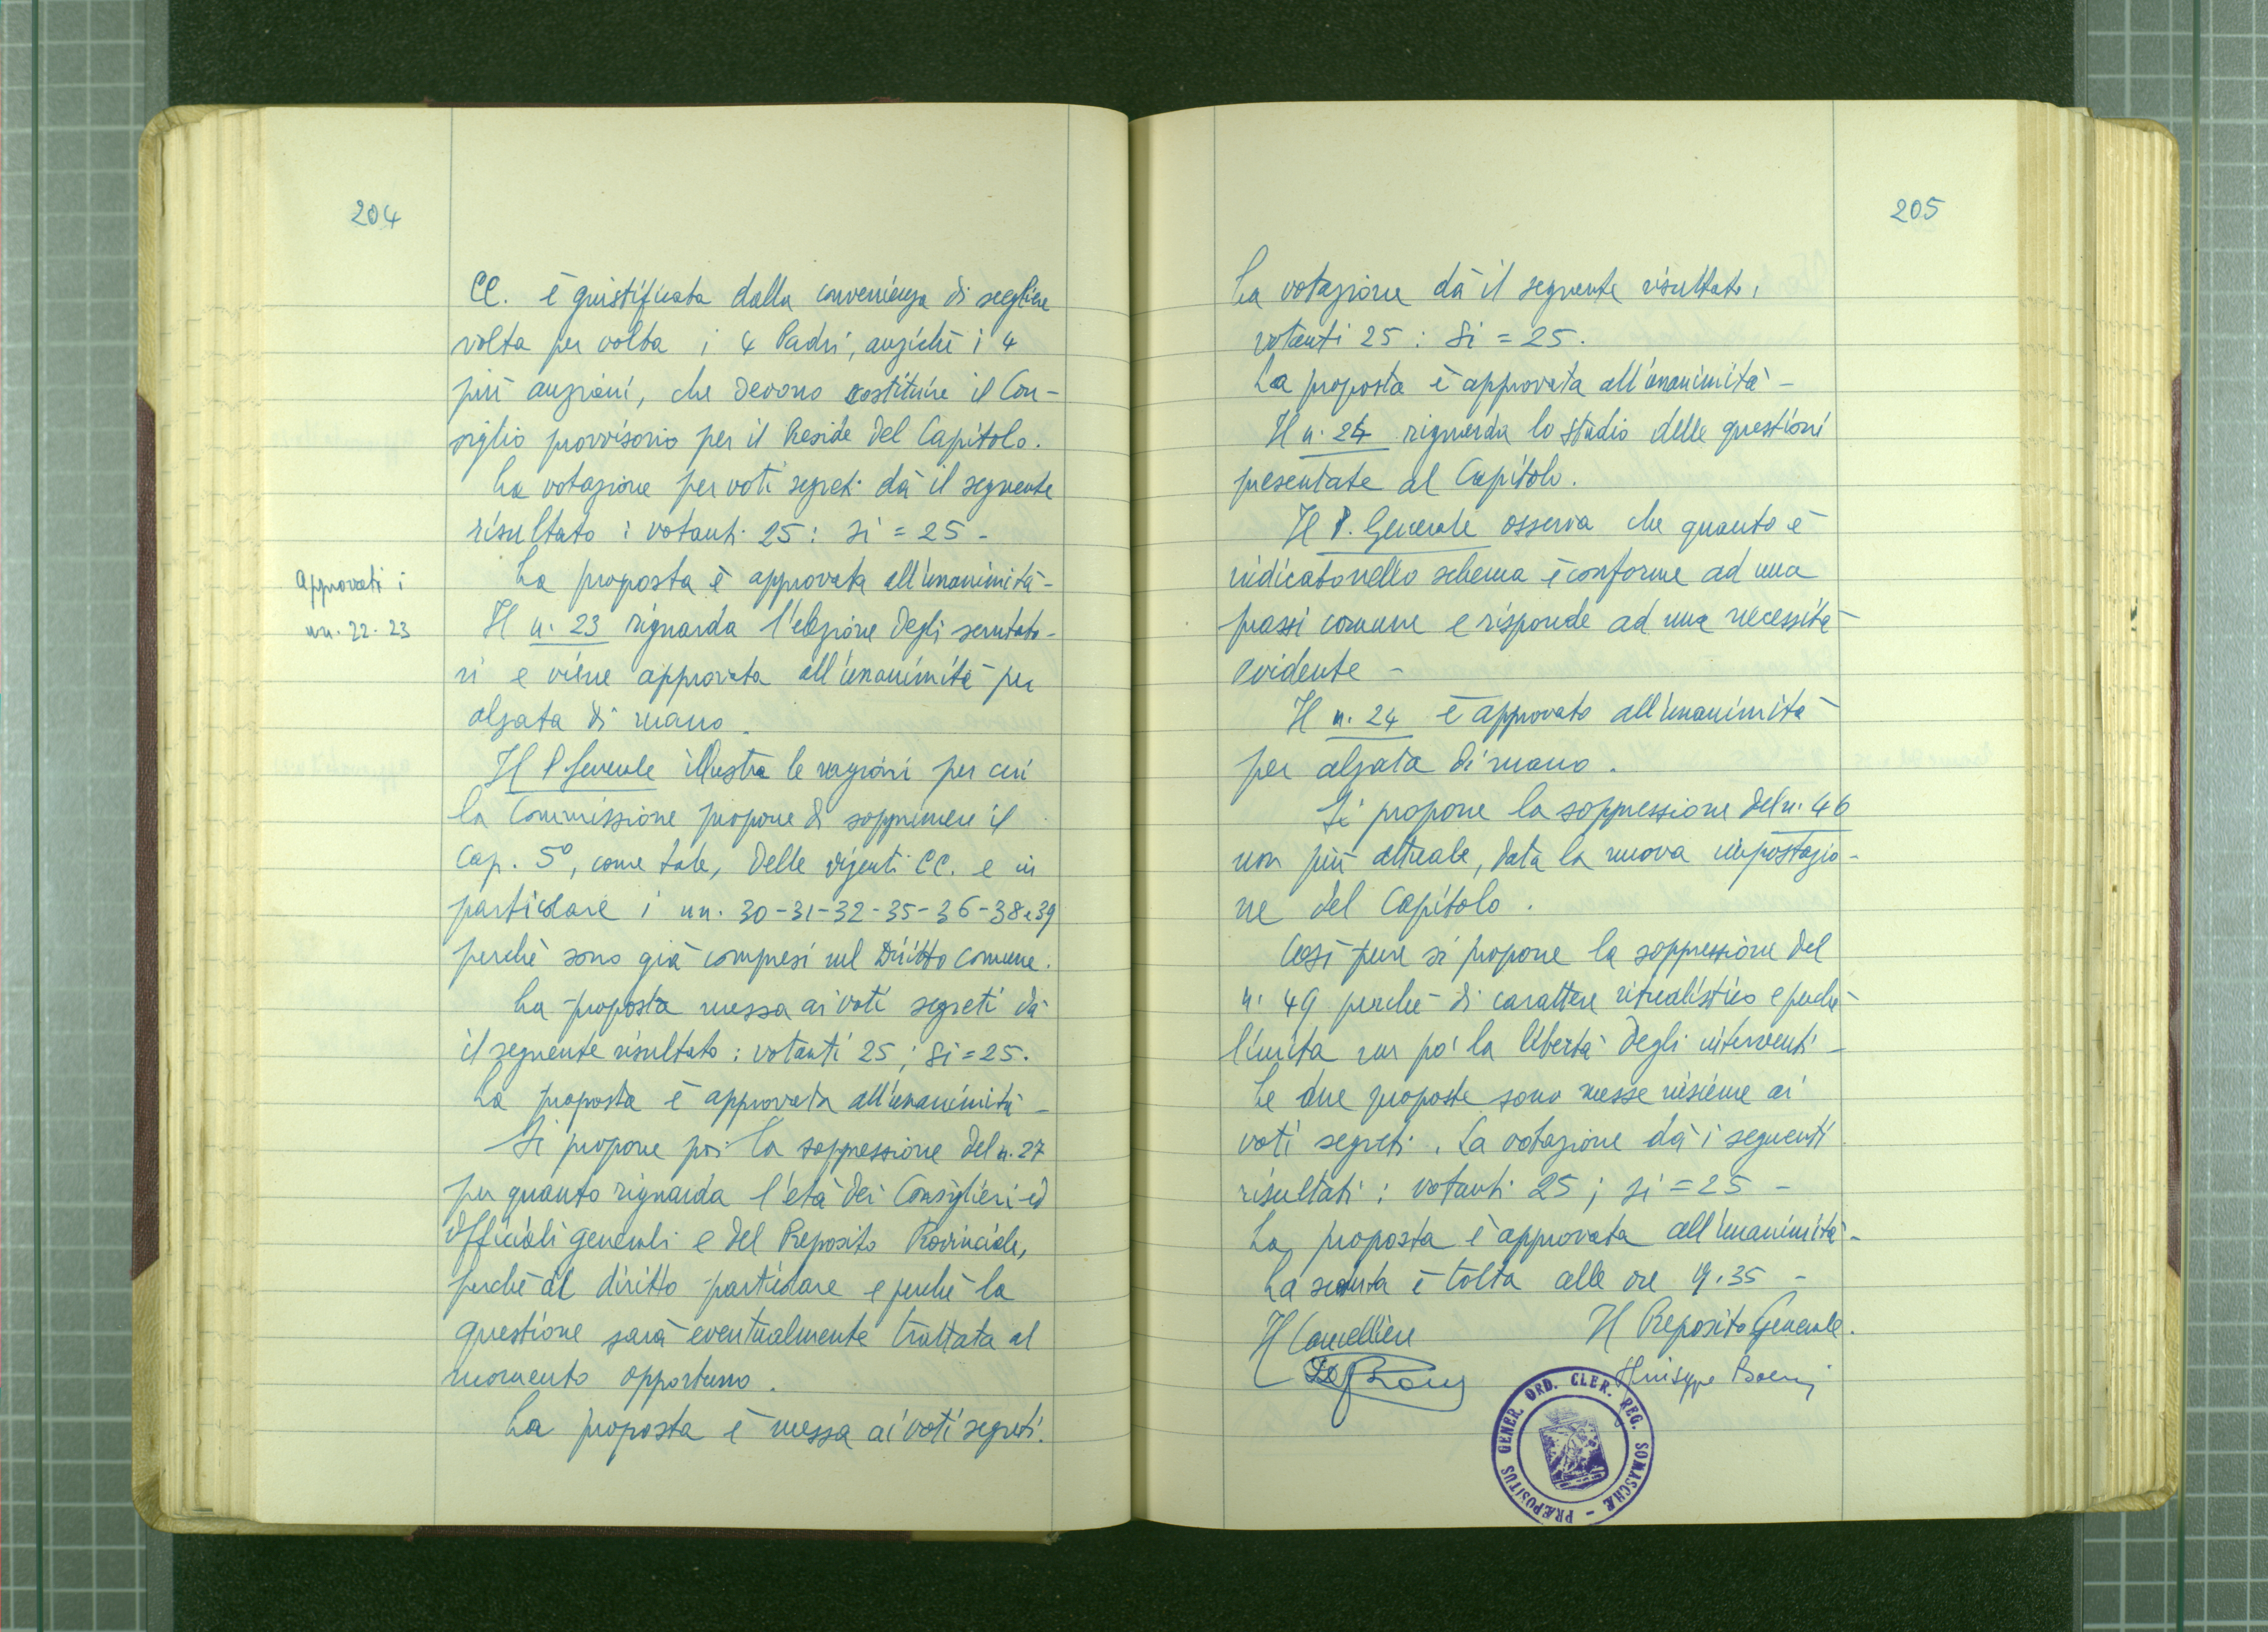 204
CC. è giustificata dalla convenienza di scegliere
volta per volta i 4 Padri, anzichè i 4
più anziani, che devono costituire il Con-
siglio provvisorio per il Preside del Capitolo.
La votazione per voti segreti dà il seguente
risultato : votanti 25 : si = 25 -
Approvati i
nn. 22. 23
La proposta è approvata all'unanimità -
Il n. 23 riguarda l'elezione degli scrutato-
ri e viene approvata all'unanimità per
alzata di mano.
Il P. Generale illustra le ragioni per cui
la Commissione propone di sopprimere il
Cap. 5º, come tale, delle vigenti CC. e in
particolare i nn. 30-31-32-35-36-38e39
perchè sono già compresi nel Diritto comune.
La proposta messa ai voti segreti dà
il seguente risultato : votanti 25 ; si = 25.
La proposta è approvata all'unanimità -
Si propone poi la soppressione del n. 27
per quanto riguarda l'età dei Consiglieri ed
Officiali generali e del Preposito Provinciale,
perchè di diritto particolare e perchè la
questione sarà eventualmente trattata al
momento opportuno.
La proposta è messa ai voti segreti.
205
La votazione dà il seguente risultato,
votanti 25 : Si = 25.
La proposta è approvata all'unanimità -
Il n. 24 riguarda lo studio delle questioni
presentate al Capitolo.
Il P. Generale osserva che quanto è
indicato nello schema è conforme ad una
prassi comune e risponde ad una necessità
evidente -
Il n. 24 è approvato all'unanimità
per alzata di mano.
Si propone la soppressione del n. 46
non più attuale, data la nuova impostazio-
ne del Capitolo.
Così pure si propone la soppressione del
n. 49 perchè di carattere ritualistico e perchè
limita un po' la libertà degli interventi -
Le due proposte sono messe insieme ai
voti segreti. La votazione dà i seguenti
risultati : votanti 25 ; si = 25 -
La proposta è approvata all'unanimità -
La seduta è tolta alle ore 19.35 -
Il Cancelliere
Il Preposito Generale.
Giuseppe Boeris
PRÆPOSITUS GENER. ORD. CLER. REG. SOMASCHÆ -